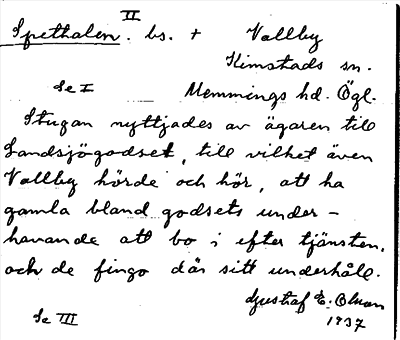 II
Spethalen. bs. + Vallby
Kimstads sn.
Se I Memmings hd. Ögl.
Stugan nyttjades av ägaren till
Landsjögodset, till vilket även
Vallby hörde och hör, att ha
gamla bland godsets under-
havande att bo i efter tjänsten,
och de fingo där sitt underhåll.
Gustaf E. Olsson
1937
Se III